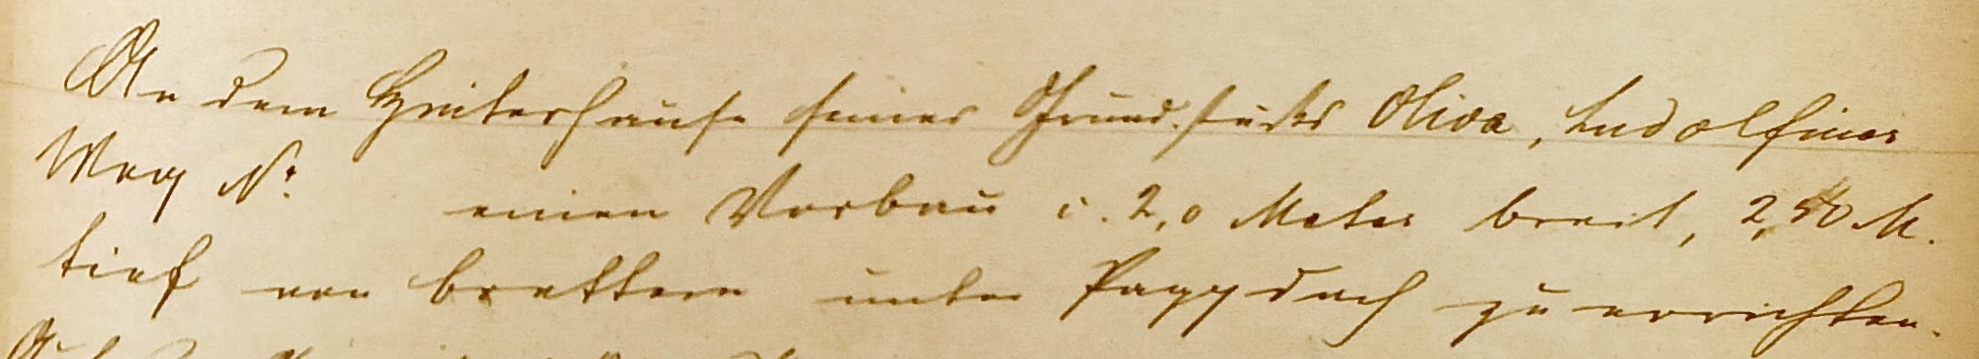 An dem Hinterhause seines Grundstücks Oliva, Ludolfiner
Weg No. einen Vorbau i. 2,0 Meter breit, 2,50 M.
tief von brettern unter Pappdach zu errichten.